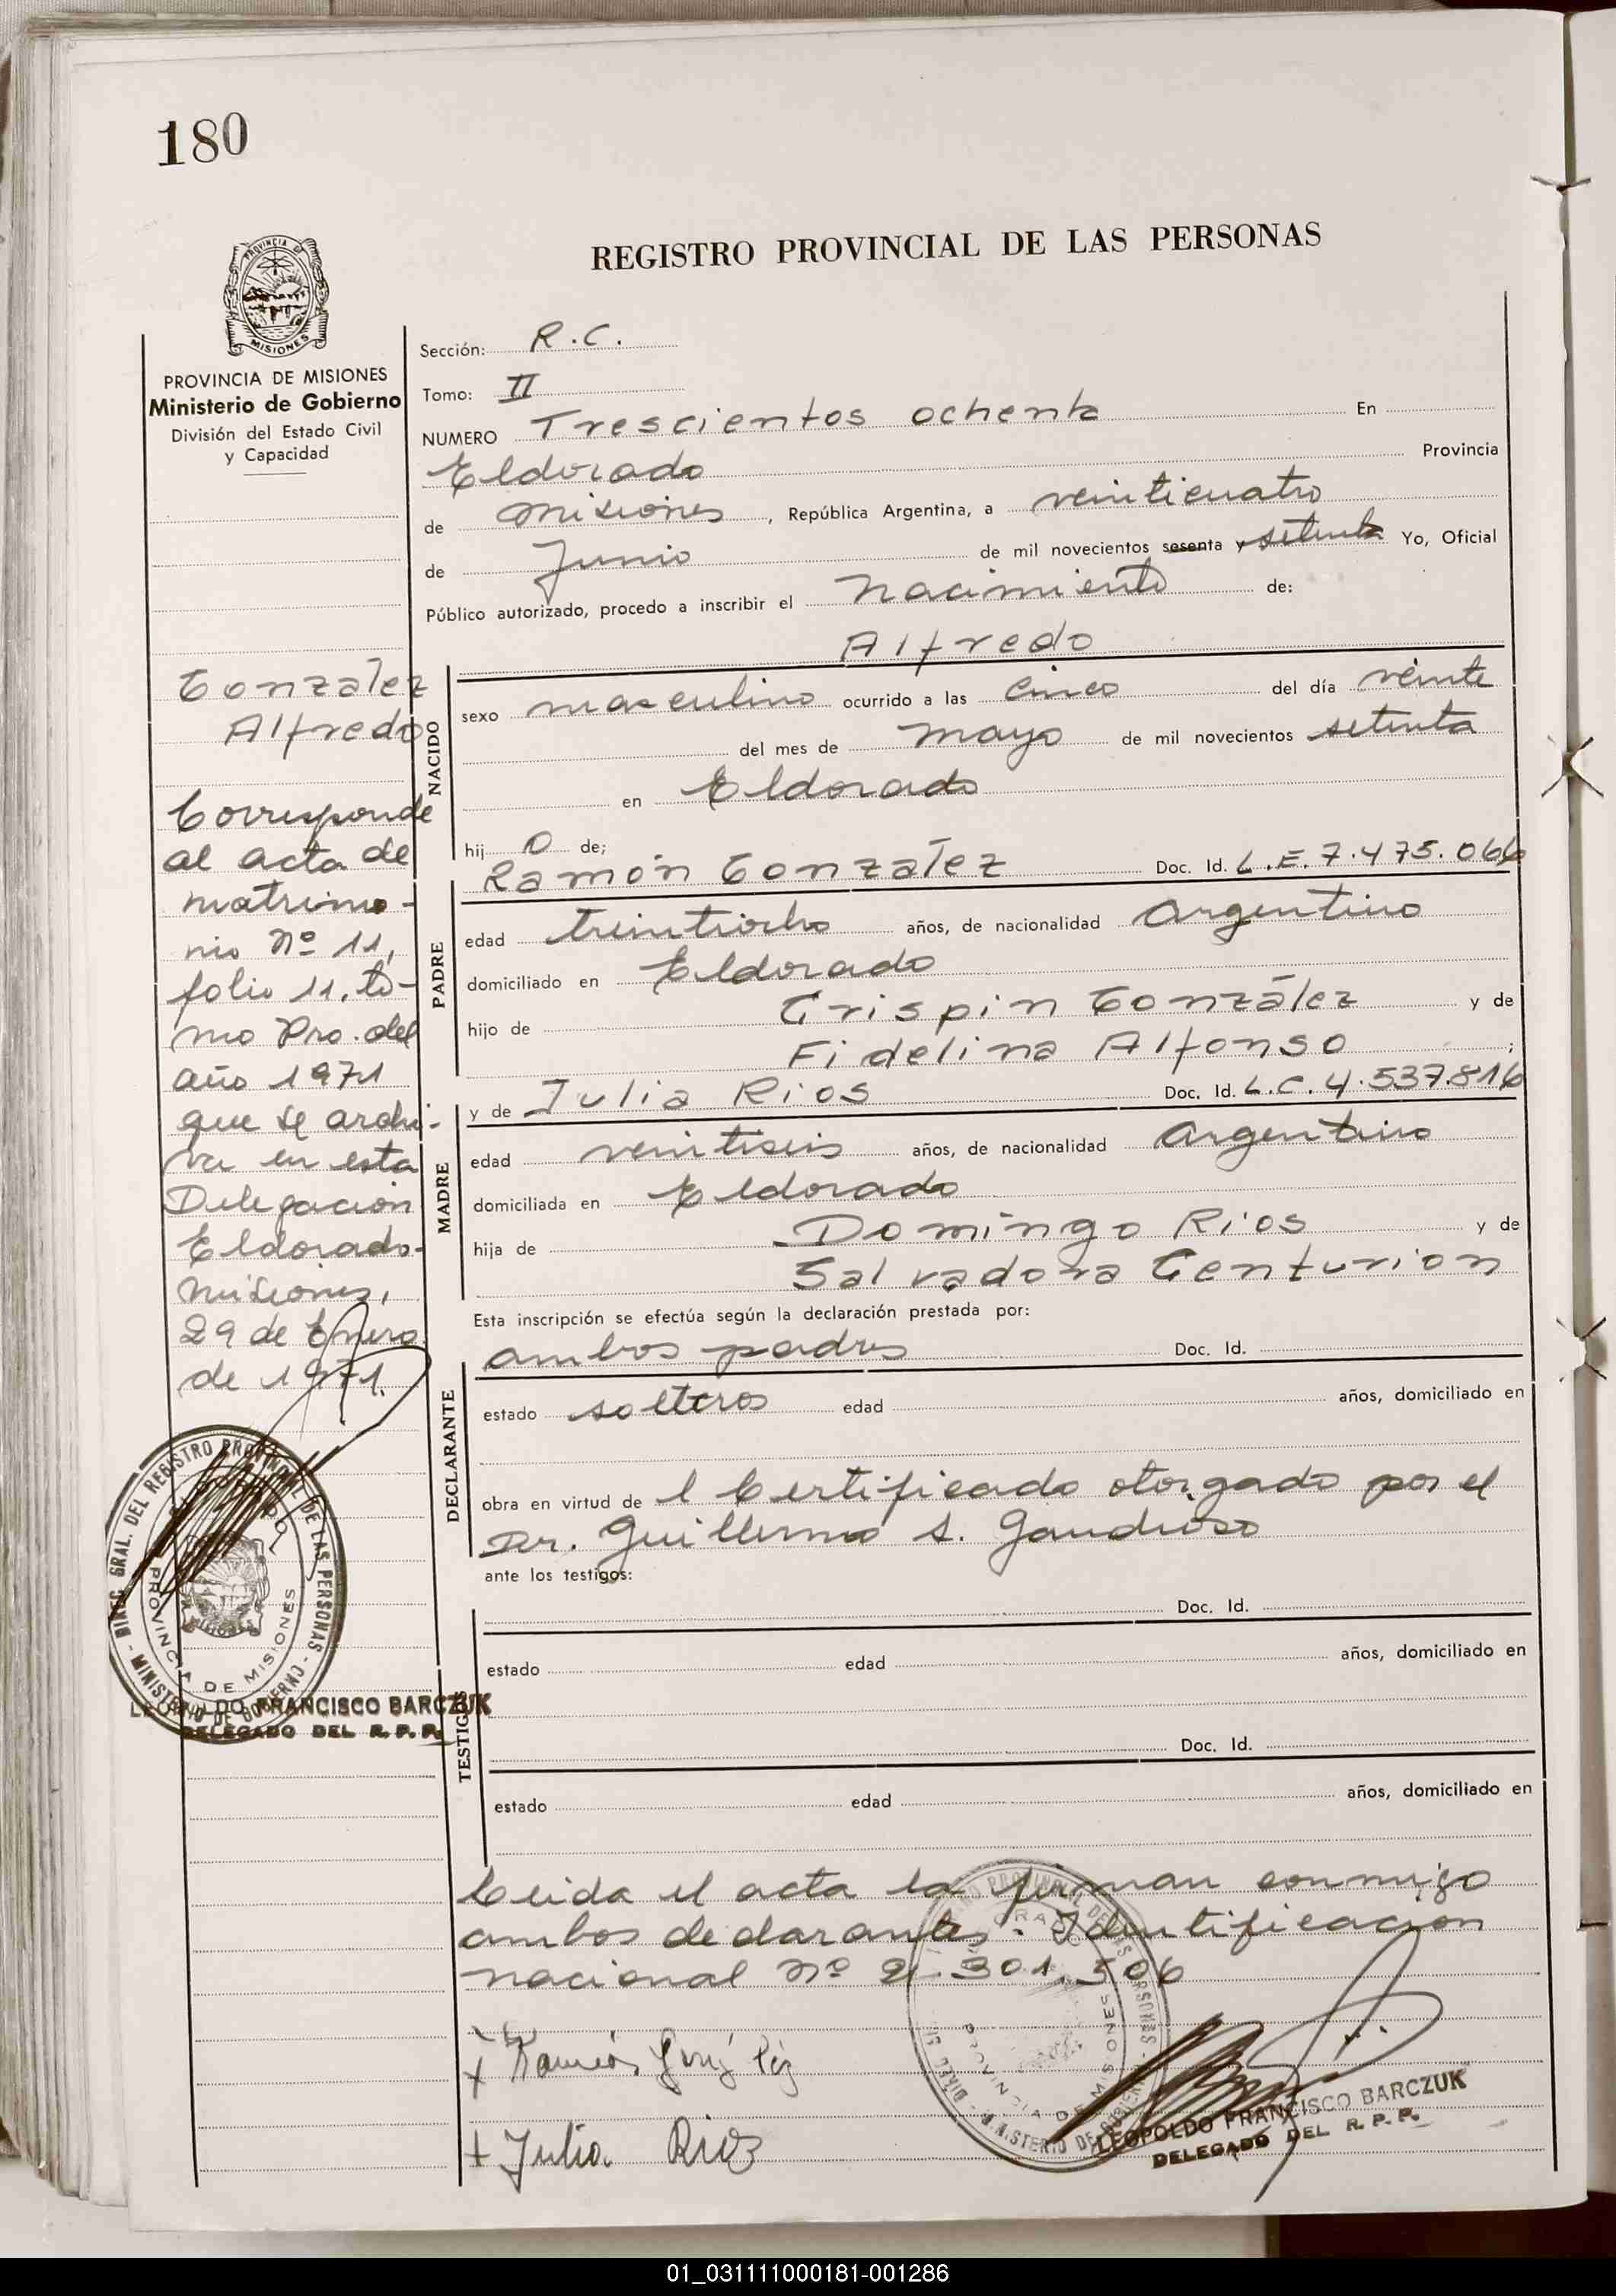 180
REGISTRO PROVINCIAL DE LAS PERSONAS
PROVINCIA DE
MISIONES
PROVINCIA DE MISIONES
Ministerio de Gobierno
División del Estado Civil
y Capacidad
Gonzalez
Alfredo
Corresponde
al acta de
matrimo-
nio Nº 11,
folio 11, to-
mo Pro. del
año 1971
que se archi-
va en esta
Delegación
Eldorado-
Misiones,
29 de Enero
de 1971.
DIREC. GRAL. DEL REGISTRO PROVINCIAL DE LAS PERSONAS - MINISTERIO DE GOBIERNO -
PROVINCIA DE MISIONES
LEOPOLDO FRANCISCO BARCZUK
DELEGADO DEL R. P. P.
Sección: R.C.
Tomo: II
NUMERO Trescientos ochenta En
Eldorado Provincia
de Misiones, República Argentina, a veinticuatro
de Junio de mil novecientos sesenta y setenta Yo, Oficial
Público autorizado, procedo a inscribir el Nacimiento de:
Alfredo
NACIDO
sexo masculino ocurrido a las cinco del día veinte
del mes de mayo de mil novecientos setenta
en Eldorado
hij o de;
Ramón González Doc. Id. L.E. 7.475.066
PADRE
edad treintiocho años, de nacionalidad Argentino
domiciliado en Eldorado
hijo de Crispin González y de
Fidelina Alfonso ;
y de Julia Rios Doc. Id. L.C. 4.537.816
MADRE
edad veintiseis años, de nacionalidad Argentina
domiciliada en Eldorado
hija de Domingo Rios y de
Salvadora Centurion
Esta inscripción se efectúa según la declaración prestada por:
ambos padres Doc. Id.
DECLARANTE
estado solteros edad años, domiciliado en
obra en virtud de l Certificado otorgado por el
Dr. Guillermo A. Gaudioso
ante los testigos:
Doc. Id.
TESTIGOS
estado edad años, domiciliado en
Doc. Id.
estado edad años, domiciliado en
Leida el acta la firman conmigo
ambos declarantes. Identificación
nacional Nº 21.301.506
+ Ramón
+ Julia Rios
PROVINCIA DE MISIONES
LEOPOLDO FRANCISCO BARCZUK
DELEGADO DEL R. P. P.
01_031111000181-001286